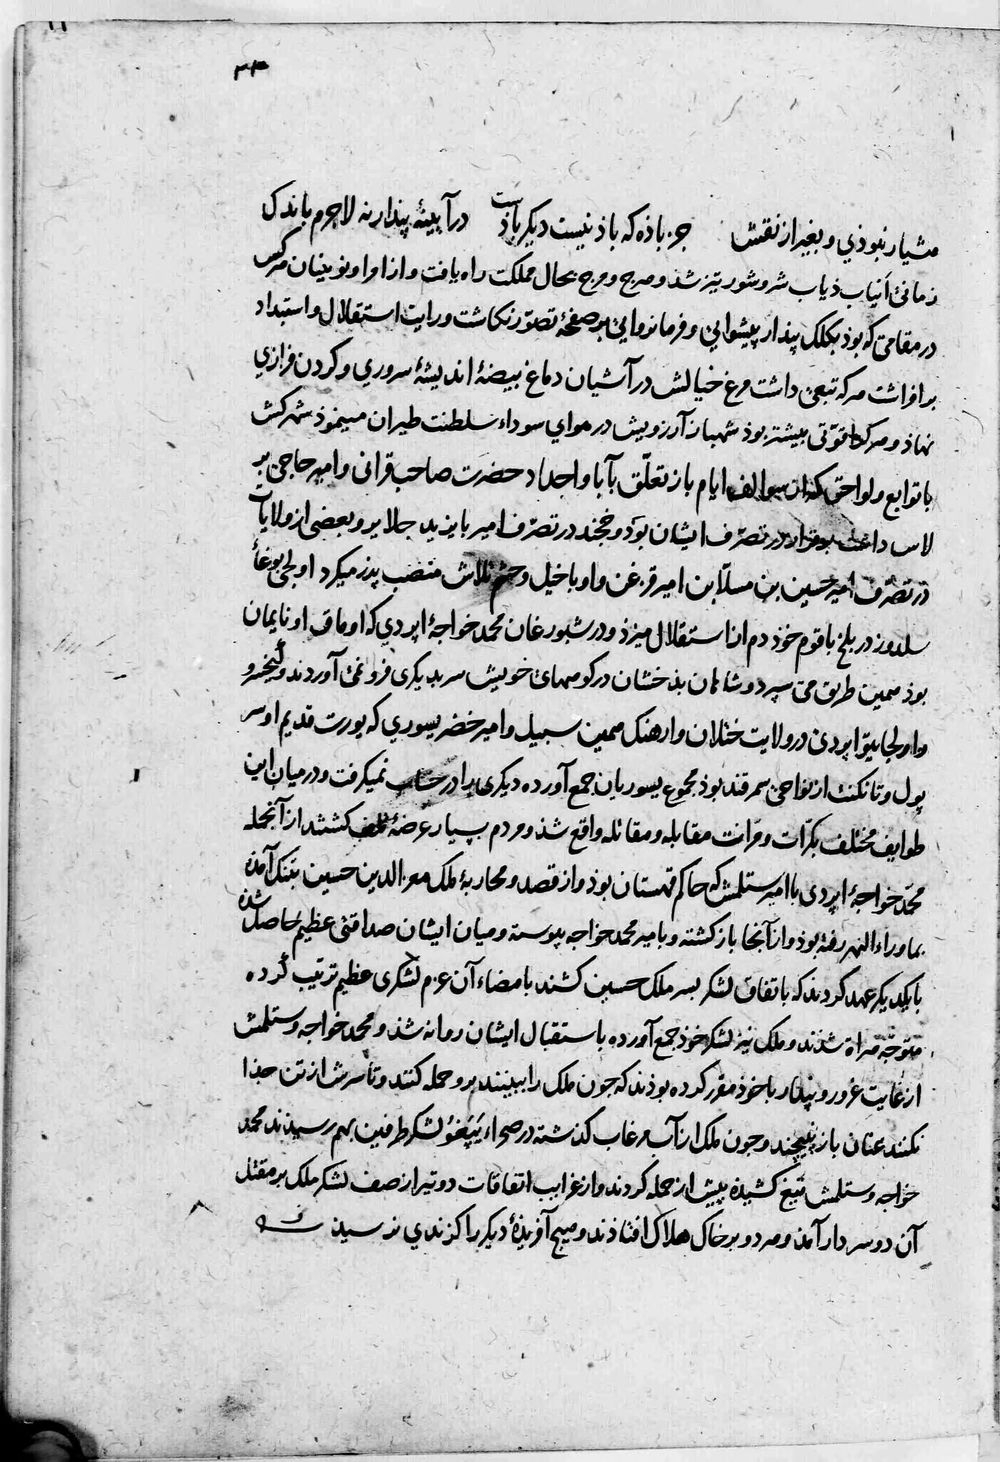 ۳۳
هشیار نبوذي و بغیر از نقش جز باذه که باذ نیست دیکر باذست در آیینهٔ پندار نه لاجرم باندک
زمانی انیاب ذیاب شر و شور تیز شد و هرج و مرج بحال مملکت راه یافت و از امرا و نوینیان هرکس
در مقامی که بوذ بکلک پندار پیشوایی و فرمانروایی بر صفحهٔ تصوّر نکاشت و رایت استقلال و استبداد
برافراشت هرکه تبعی داشت مرغ خیالش در آشیان دماغ بیضهٔ اندیشهٔ سروري و کردن فرازي
نهاذ و هرکرا قوّتی بیشتر بوذ شهباز آرزویش در هواي سوداء سلطنت طیران مینموذ شهر کش
با توابع و لواحق که از سوالف ایام باز تعلّق بآبا و اجداد حضرت صاحب قرانی و امیر حاجی بر
لاس داشت برقرار در تصرّف ایشان بوَد و خجند در تصرّف امیر بایزید جلایر و بعضی از ولایات
در تصرّف امیر حسین بن مسلّا بن امیر قزغن و او با خیل و حشم تلاش منصب پدر میکرد اولجی بوغاء
سلدوز در بلخ با قوم خوذ دم از استقلال میزذ و در شبورغان محمد خواجهٔ اپردي که اوماق او نایمان
بوذ همین طریق می سپرد و شاهان بذخشان در کوههای خویش سر بدیکری فرو نمی آوردند و کیخسرو
و اولجایتو اپردی در ولایت ختلان و ارهنک همین سبیل و امیر خضر یسوري که یورت قدیم او سر
پول و تانکت از نواحی سمرقند بوذ مجموع یسوریان جمع آورده دیکری را در حساب نمیکرفت و در میان این
طوایف مختلف بکرّات و مرّات مقابله و مقاتله واقع شذ و مردم بسیار عرضهٔ تلف کشتند از آنجمله
محمّد خواجهٔ اپردی با امیر ستلمش که حاکم قهستان بوذ و از قصد و محاربهٔ ملک معز الدین حسین بتنک آمذه
بماوراء النهر رفته بوذ و از آنجا باز کشته و بامیر محمد خواجه پیوسته و میان ایشان صداقتی عظیم حاصل شده
با یکدیکر عهد کردند که باتفاق لشکر بسر ملک حسین کشند بامضاء آن عزم لشکری عظیم ترتیب کرده
متوجّه هراة شدند و ملک نیز لشکر خوذ جمع آورده باستقبال ایشان روانه شذ و محمد خواجه و ستلمش
از غایت غرور و پندار با خوذ مقرر کرده بوذند که جون ملک را ببینند برو حمله کنند و تا سرش از تن جذا
نکنند عنان باز نپیچند و جون ملک از آب مرغاب کذشته در صحراء لشکر طرفین بهم رسیذند محمد
خواجه و ستلمش تیغ کشیذه پیش از حمله کردند و از غرایب اتفاقات دو تیر از صف لشکر ملک بر مقتل
آن دو سردار آمذ و هر دو بر خاک هلاک افتاذند و هیچ آفریذهٔ دیکر را کزندي نرسیذ